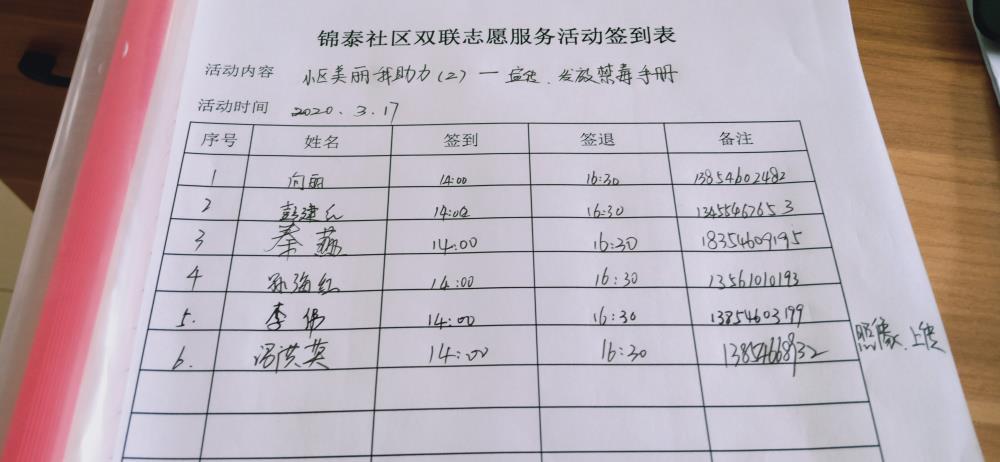 锦泰社区双联志愿服务活动签到表
活动内容 小区美丽我助力(2)一宣传、发放禁毒手册
活动时间 2020.3.17
序号 姓名 签到 签退 备注
1 向丽 14:00 16:30 13854602482
2 彭建红 14:00 16:30 13455467653
3 秦燕 14:00 16:30 18354609195
4 孙海红 14:00 16:30 13561010193
5. 李伟 14:00 16:30 13854603199
6. 冯洪英 14:00 16:30 13854668932
照像、上传